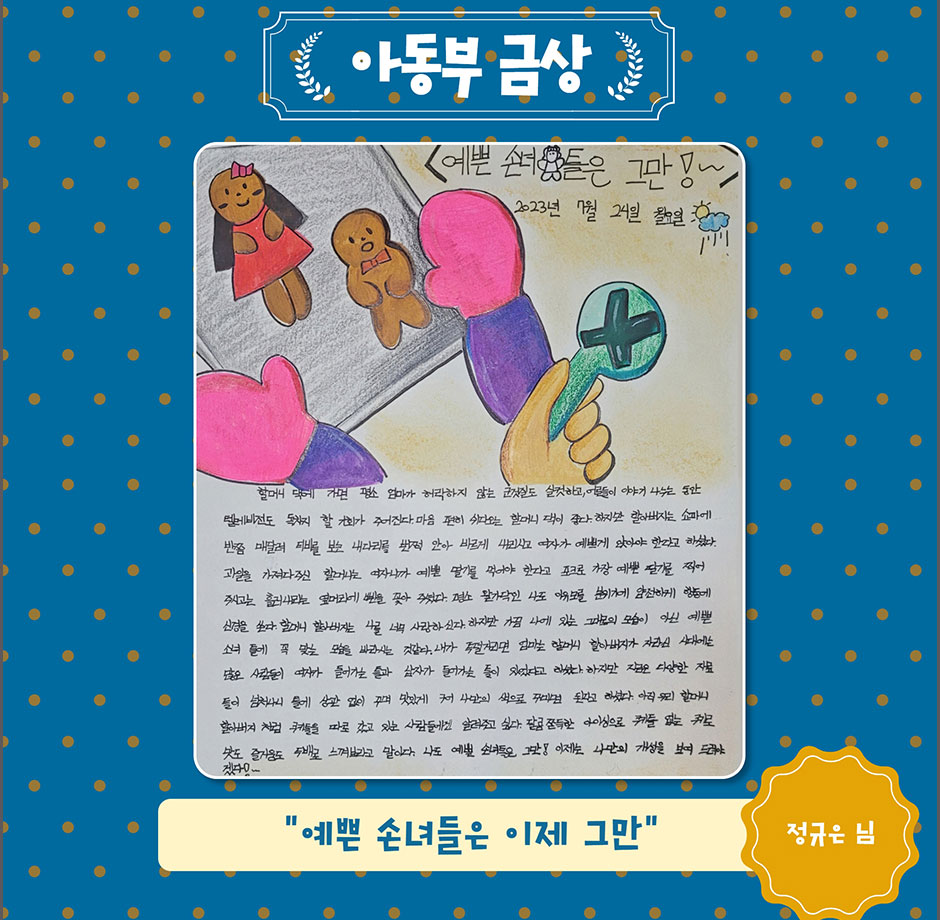 아동부 금상
<예쁜 손녀들은 그만!~>
2023년 7월 24일 월요일
할머니 댁에 가면 평소 엄마가 허락하지 않는 군것질도 실컷하고, 어른들이 이야기 나누는 동안
텔레비전도 독차지 할 기회가 주어진다. 마음 편히 쉬다오는 할머니 댁이 좋다. 하지만 할아버지는 소파에
반쯤 매달려 티비를 보는 내다리를 번쩍 안아 바르게 내리시고 여자가 예쁘게 앉아야 한다고 하셨다.
과일을 가져다주신 할머니는 여자니까 예쁜 딸기를 먹어야 한다고 포크로 가장 예쁜 딸기를 찍어
주시고는 흘러내리는 옆머리에 삔을 꽂아 주셨다. 평소 왈가닥인 나도 이유모를 분위기에 얌전하게 행동에
신경을 쓴다. 할머니 할아버지는 나를 너무 사랑하신다. 하지만 가끔 나에 있는 그대로의 모습이 아닌 예쁜
소녀 틀에 꼭 맞는 모습을 바라시는 것같다. 내가 투덜거리면 엄마는 할머니 할아버지가 자라신 시대에는
많은 사람들이 여자가 들어가는 틀과 남자가 들어가는 틀이 있었다고 하셨다. 하지만 지금은 다양한 재료
들이 넘쳐나니 틀에 상관 없이 꾸며 맛있게 구워 나만의 색으로 꾸미면 된다고 하셨다. 아직 우리 할머니
할아버지 처럼 쿠키틀을 따로 갖고 있는 사람들에겐 알려주고 싶다. 달콤 쫀득한 아이싱으로 쿠키틀 없는 쿠키로
맛도 즐거움도 두배로 느껴보라고 말이다. 나도 예쁜 손녀들은 그만! 이제는 나만의 개성을 보여 드려야
겠다!~
"예쁜 손녀들은 이제 그만"
정규은 님